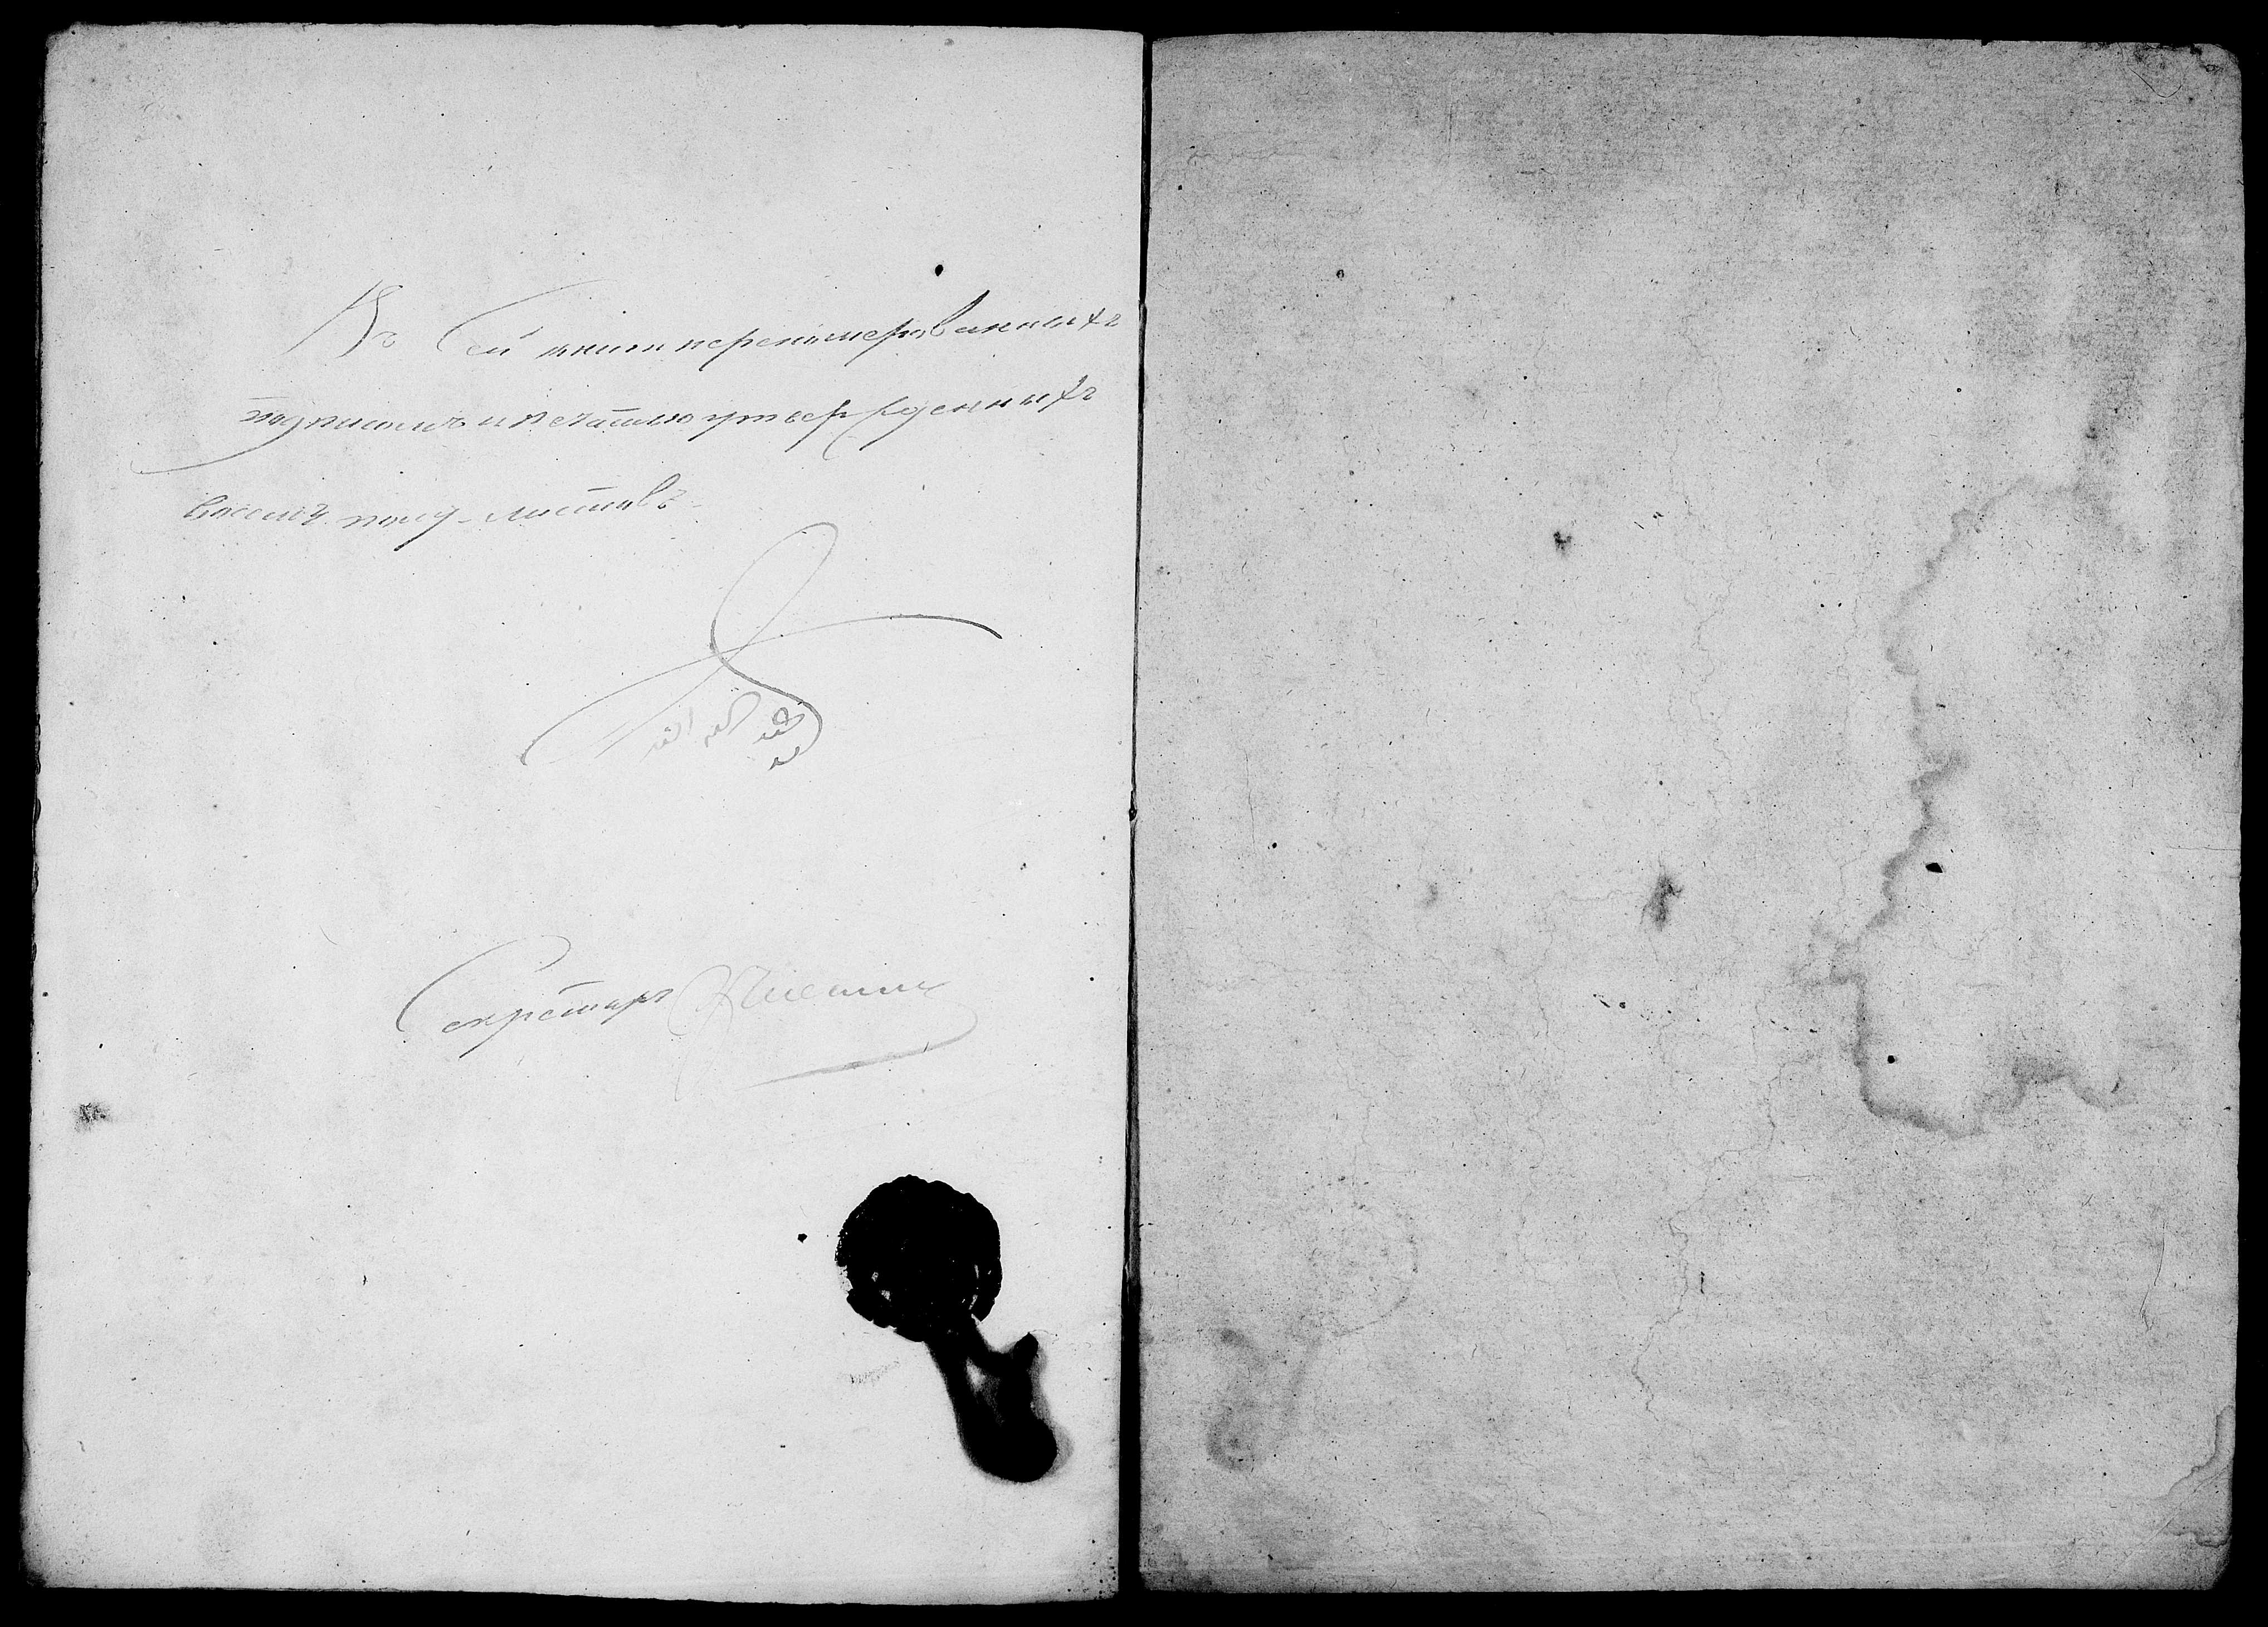 Въ Сей книги перенумерованныхъ
подписомъ и печатью утвержденныхъ
восемь полу-листовъ
Секретарь